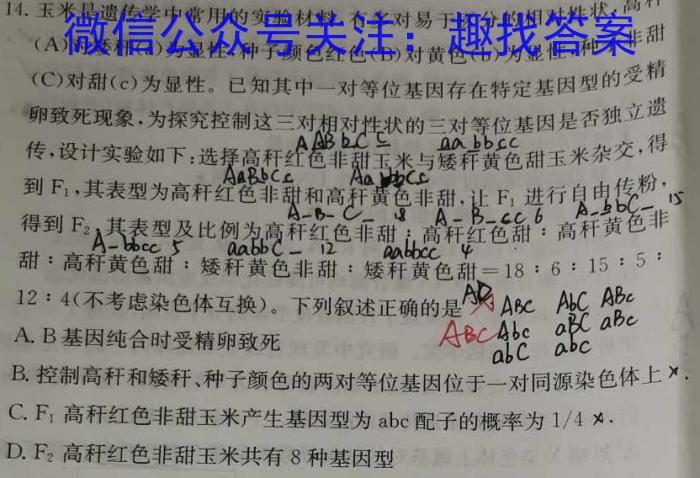 14. 玉米是遗传学中常用的实验材料,有多对易于区分的相对性状,高秆
微信公众号关注：趣找答案
(A)对矮秆(a)为显性,种子颜色红色(B)对黄色(b)为显性,种子非甜
(C)对甜(c)为显性。已知其中一对等位基因存在特定基因型的受精
卵致死现象,为探究控制这三对相对性状的三对等位基因是否独立遗
AABbCc aabbcc
传,设计实验如下:选择高秆红色非甜玉米与矮秆黄色甜玉米杂交,得
AaBbCc AabbCc
到 F₁,其表型为高秆红色非甜和高秆黄色非甜,让 F₁ 进行自由传粉,
A-B-C- 18 A-B-cc 6 A-bbC- 15
得到 F₂,其表型及比例为高秆红色非甜:高秆红色甜:高秆黄色非
A-bbcc 5 aabbC- 12 aabbcc 4
甜:高秆黄色甜:矮秆黄色非甜:矮秆黄色甜=18:6:15:5:
12:4(不考虑染色体互换)。下列叙述正确的是
ABc AbC ABc
A. B 基因纯合时受精卵致死
ABC Abc aBC aBc
abC abc
B. 控制高秆和矮秆、种子颜色的两对等位基因位于一对同源染色体上 ×.
C. F₁ 高秆红色非甜玉米产生基因型为 abc 配子的概率为 1/4 ×.
D. F₂ 高秆红色非甜玉米共有 8 种基因型